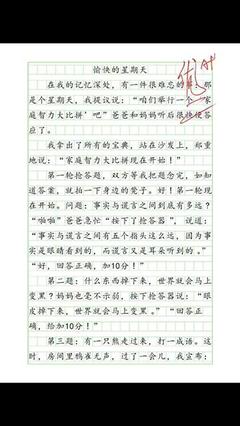 愉快的星期天
在我的记忆深处，有一件很难忘的事：那
是个星期天，我提议说：“咱们举行一个‘家
庭智力大比拼’吧”爸爸和妈妈听后很快便答
应了。
我拿出了所有的宝典，站在沙发上，郑重
地说：“家庭智力大比拼现在开始！”
第一轮抢答题，双方等我把题念完，如知
道答案，就拍一下身边的凳子。好！第一轮现
在开始。问题：事实与谎言之间到底有多远？
“啪啪”爸爸急忙“按下了抢答器”，说道：
“事实与谎言之间有五个指头这么远，因为事
实是眼睛看到的，而谎言又是耳朵听到的。”
“好，回答正确，加10分！”
第二题：什么东西掉下来，世界就会马上
变黑？妈妈也毫不示弱，按下抢答器说：“眼
皮掉下来，世界就会马上变黑。”“回答正确，
给加10分！”
第三题：有一只熊走过来，打一成语。这
时，房间里鸦雀无声，过了一会儿，我宣布：
优A+